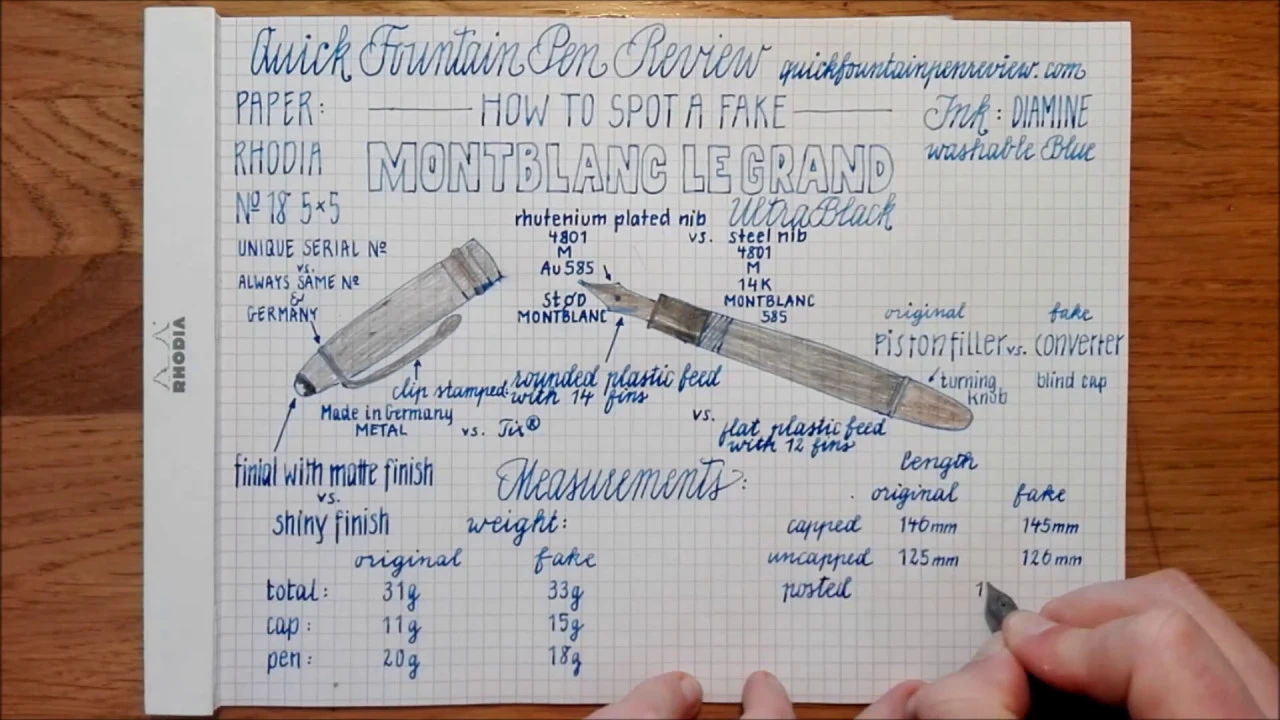 Quick Fountain Pen Review quickfountainpenreview.com
PAPER: HOW TO SPOT A FAKE Ink: DIAMINE
RHODIA MONTBLANC LE GRAND washable Blue
Nº 18 5×5 UltraBlack
rhutenium plated nib vs. steel nib
4801 4801
M M
Au 585 14K
StOD MONTBLANC
MONTBLANC 585
UNIQUE SERIAL Nº
vs.
ALWAYS SAME Nº
&
GERMANY
RHODIA
original fake
Pistonfiller vs. converter
turning blind cap
knob
clip stamped:
Made in Germany
METAL vs. Tix®
rounded plastic feed
with 14 fins
vs.
flat plastic feed
with 12 fins
finial with matte finish
vs.
shiny finish
Measurements:
weight:
original fake
total: 31g 33g
cap: 11g 15g
pen: 20g 18g
length
original fake
capped 146mm 145mm
uncapped 125mm 126mm
posted 1